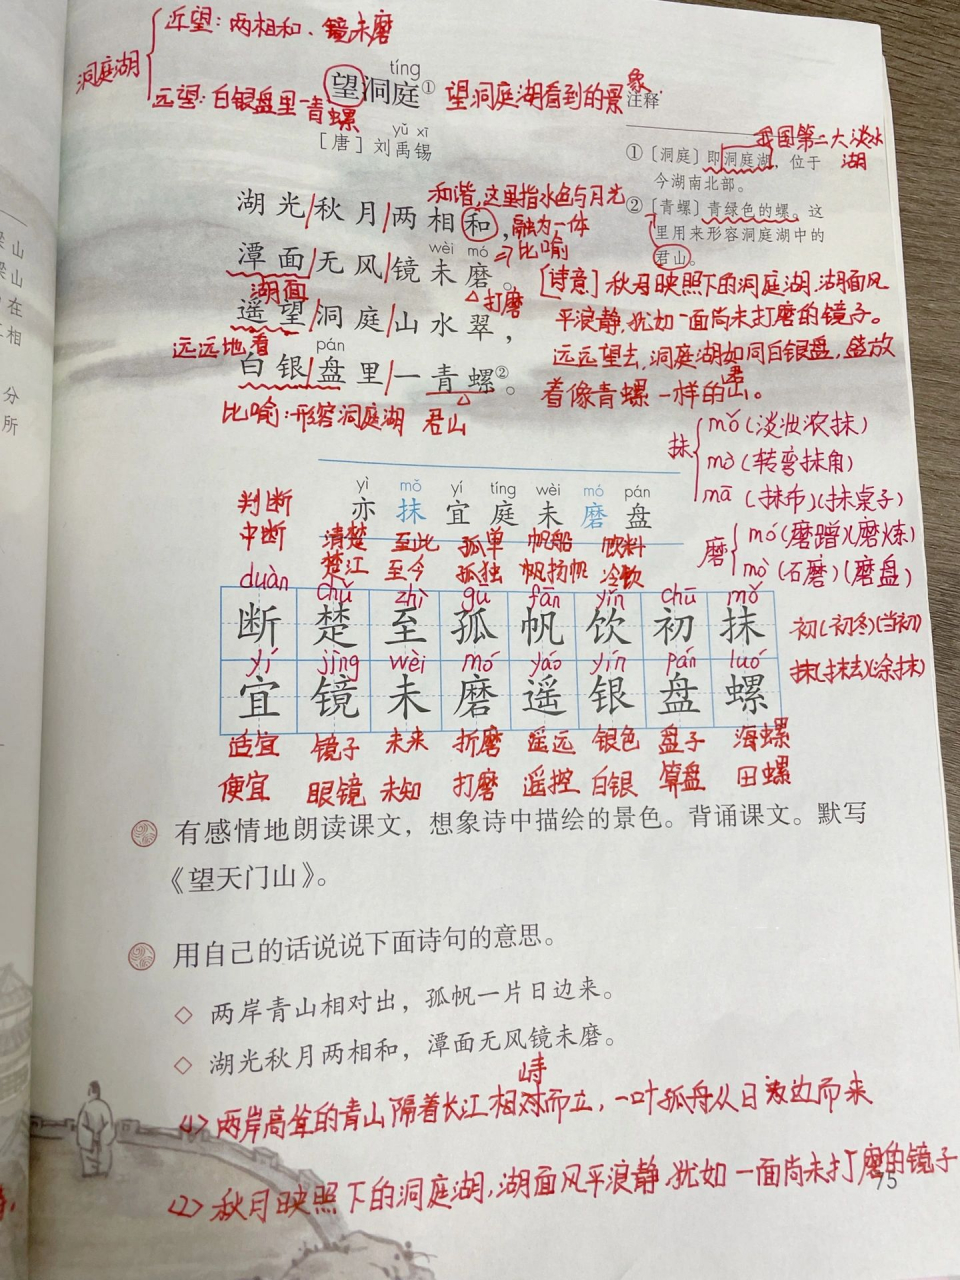 近望：两相和、镜未磨
洞庭湖
远望：白银盘里一青螺
tíng
望洞庭①
望洞庭湖看到的景象.
注释
yǔ xī
［唐］刘禹锡
我国第二大淡水湖
①［洞庭］即洞庭湖，位于
今湖南北部。
②［青螺］青绿色的螺。这
里用来形容洞庭湖中的
君山。
和谐,这里指水色与月光
融为一体
湖光/秋月/两相和，
wèi mó
比喻
潭面/无风/镜未磨。
湖面
打磨
遥望/洞庭/山水翠，
远远地看
pán
白银/盘里/一青螺②。
比喻：形容洞庭湖
君山
［诗意］秋月映照下的洞庭湖.湖面风
平浪静,犹如一面尚未打磨的镜子。
远远望去,洞庭湖如同白银盘,盛放
着像青螺一样的君山。
抹
mǒ(淡妆浓抹)
mò(转弯抹角)
mā(抹布)(抹桌子)
磨
mó(磨蹭)(磨炼)
mò(石磨)(磨盘)
yì mǒ yí tíng wèi mó pán
亦 抹 宜 庭 未 磨 盘
判断
中断 清楚 至此 孤单 帆船 饮料
楚江 至今 孤独 帆扬帆 冷饮
duàn chǔ zhì gū fān yǐn chū mǒ
断 楚 至 孤 帆 饮 初 抹
初(初冬)(当初)
yí jìng wèi mó yáo yín pán luó
宜 镜 未 磨 遥 银 盘 螺
抹(抹去)(涂抹)
适宜 镜子 未来 折磨 遥远 银色 盘子 海螺
便宜 眼镜 未知 打磨 遥控 白银 算盘 田螺
有感情地朗读课文，想象诗中描绘的景色。背诵课文。默写
《望天门山》。
用自己的话说说下面诗句的意思。
◇ 两岸青山相对出，孤帆一片日边来。
◇ 湖光秋月两相和，潭面无风镜未磨。
<1> 两岸高耸的青山隔着长江相对峙而立，一叶孤舟从日边而来
<2> 秋月映照下的洞庭湖,湖面风平浪静.犹如一面尚未打磨的镜子
75
梁山
梁山
在
工相
分
所